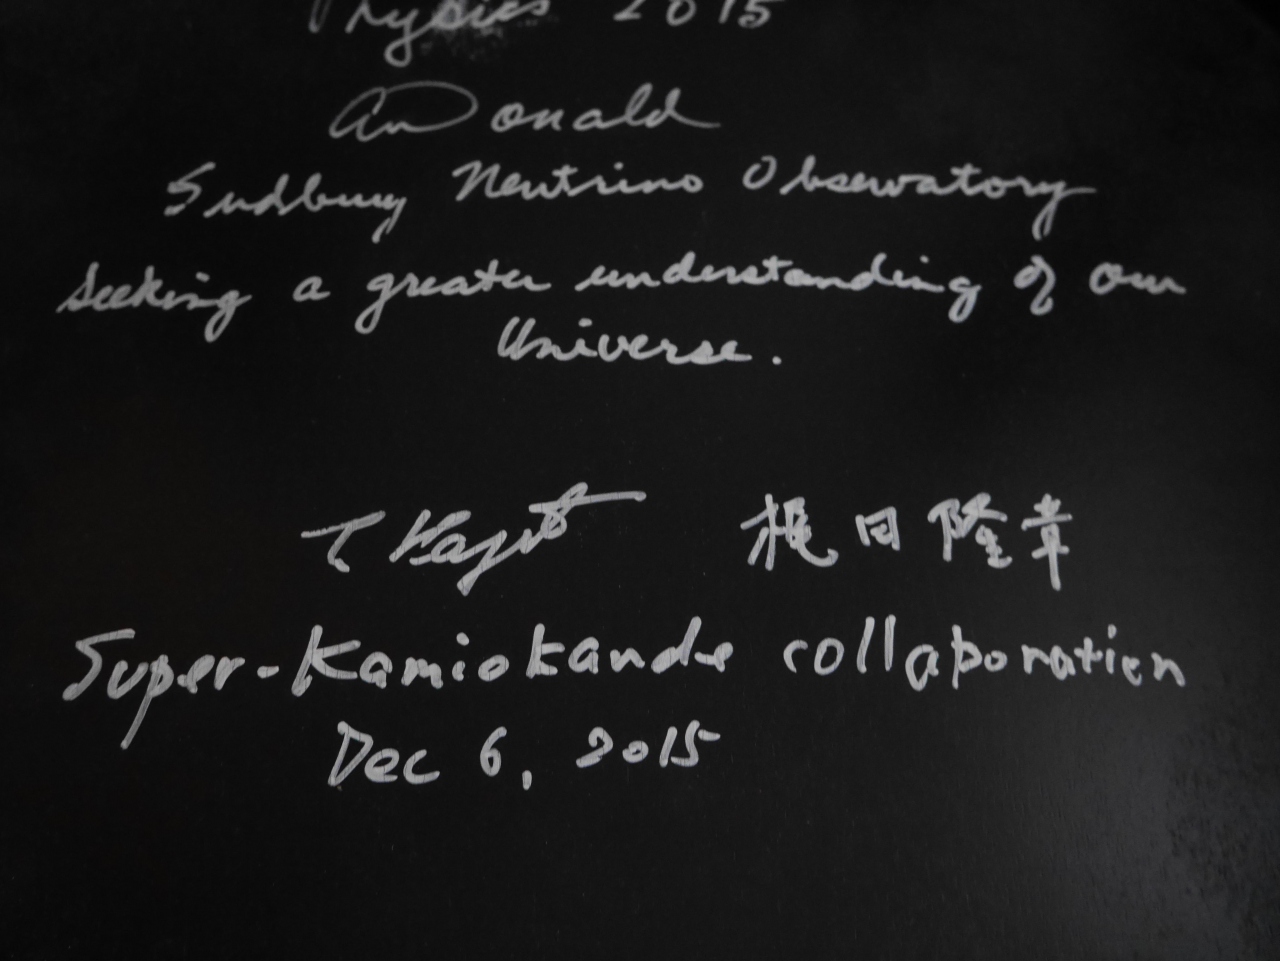 Physics 2015
ADonald
Sudbury Neutrino Observatory
Seeking a greater understanding of our
Universe.
T Kajita 梶田隆章
Super-Kamiokande collaboration
Dec 6, 2015